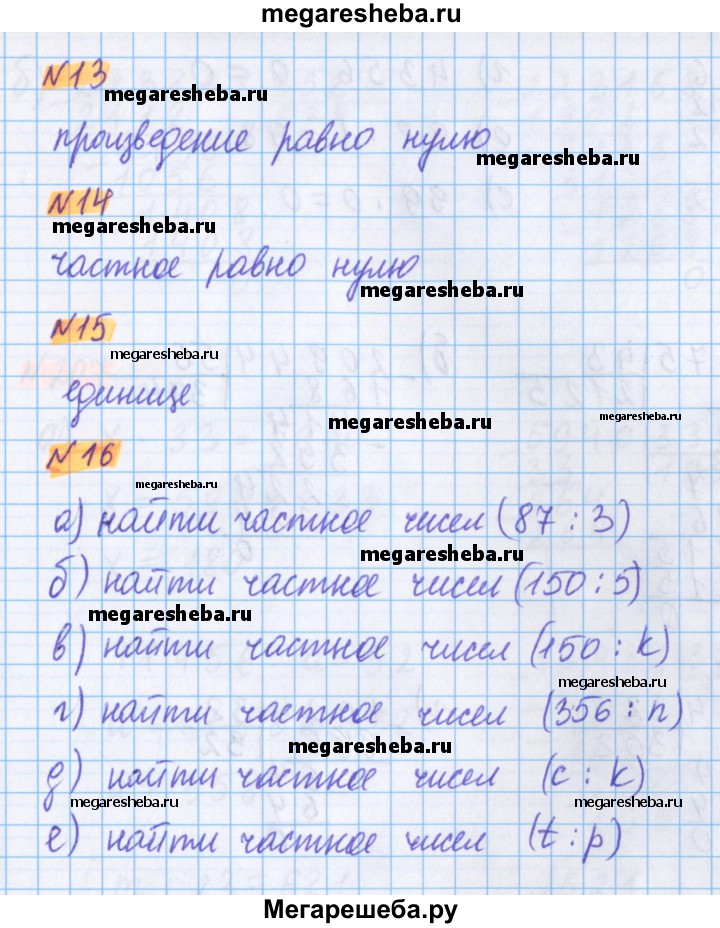 megaresheba.ru
№13
megaresheba.ru
произведение равно нулю
megaresheba.ru
№14
megaresheba.ru
частное равно нулю
megaresheba.ru
№15
megaresheba.ru
единице
megaresheba.ru
megaresheba.ru
№16
megaresheba.ru
а) найти частное чисел (87 : 3)
megaresheba.ru
б) найти частное чисел (150 : 5)
megaresheba.ru
в) найти частное чисел (150 : k)
megaresheba.ru
г) найти частное чисел (356 : n)
megaresheba.ru
д) найти частное чисел (c : k)
megaresheba.ru megaresheba.ru
е) найти частное чисел (t : p)
Мегарешеба.ру